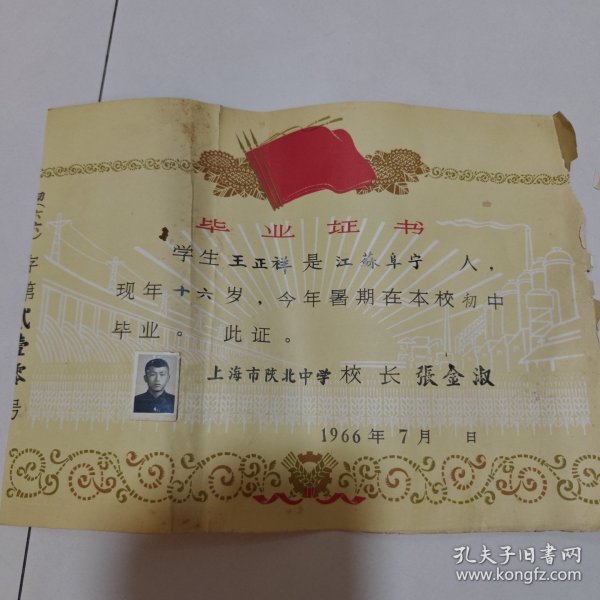 毕业证书
学生王正祥是江蘇阜宁 人,
现年十六岁,今年暑期在本校初中
毕业。此证。
上海市陕北中学 校长 張金淑
1966年7月 日
初(六六)字第貳壹零号
孔夫子旧书网
www.kongfz.com